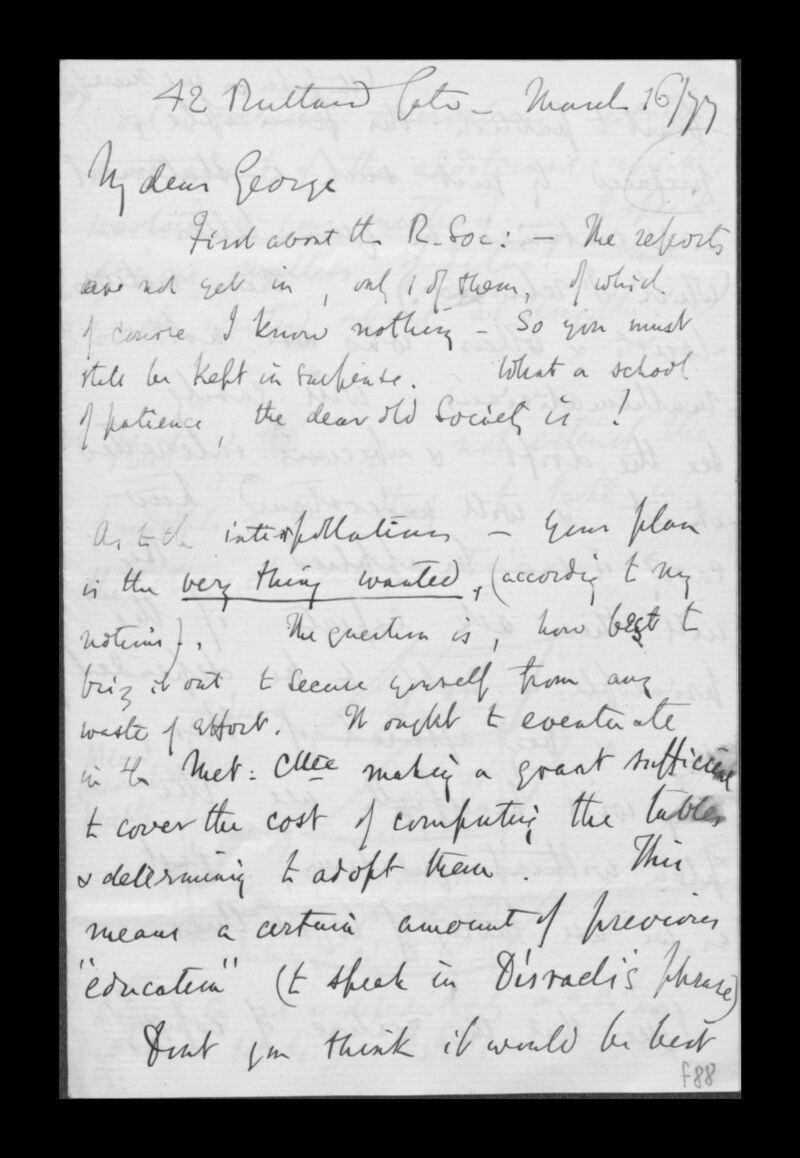 42 Rutland Gate – March 16/77
My dear George
First about the R. Soc: – The reports
are not yet in, only 1 of them, of which
of course I know nothing – So you must
still be kept in suspense. What a school
of patience, the dear old Society is!
As to the interpollations – your plan
is the very thing wanted, (according to my
notions). The question is, how best to
bring it out to secure yourself from any
waste of effort. It ought to eventuate
in the Met: Cttee making a grant sufficient
to cover the cost of computing the tables
& determining to adopt them. This
means a certain amount of previous
"education" (to speak in Disraeli's phrase)
Dont you think it would be best
f88